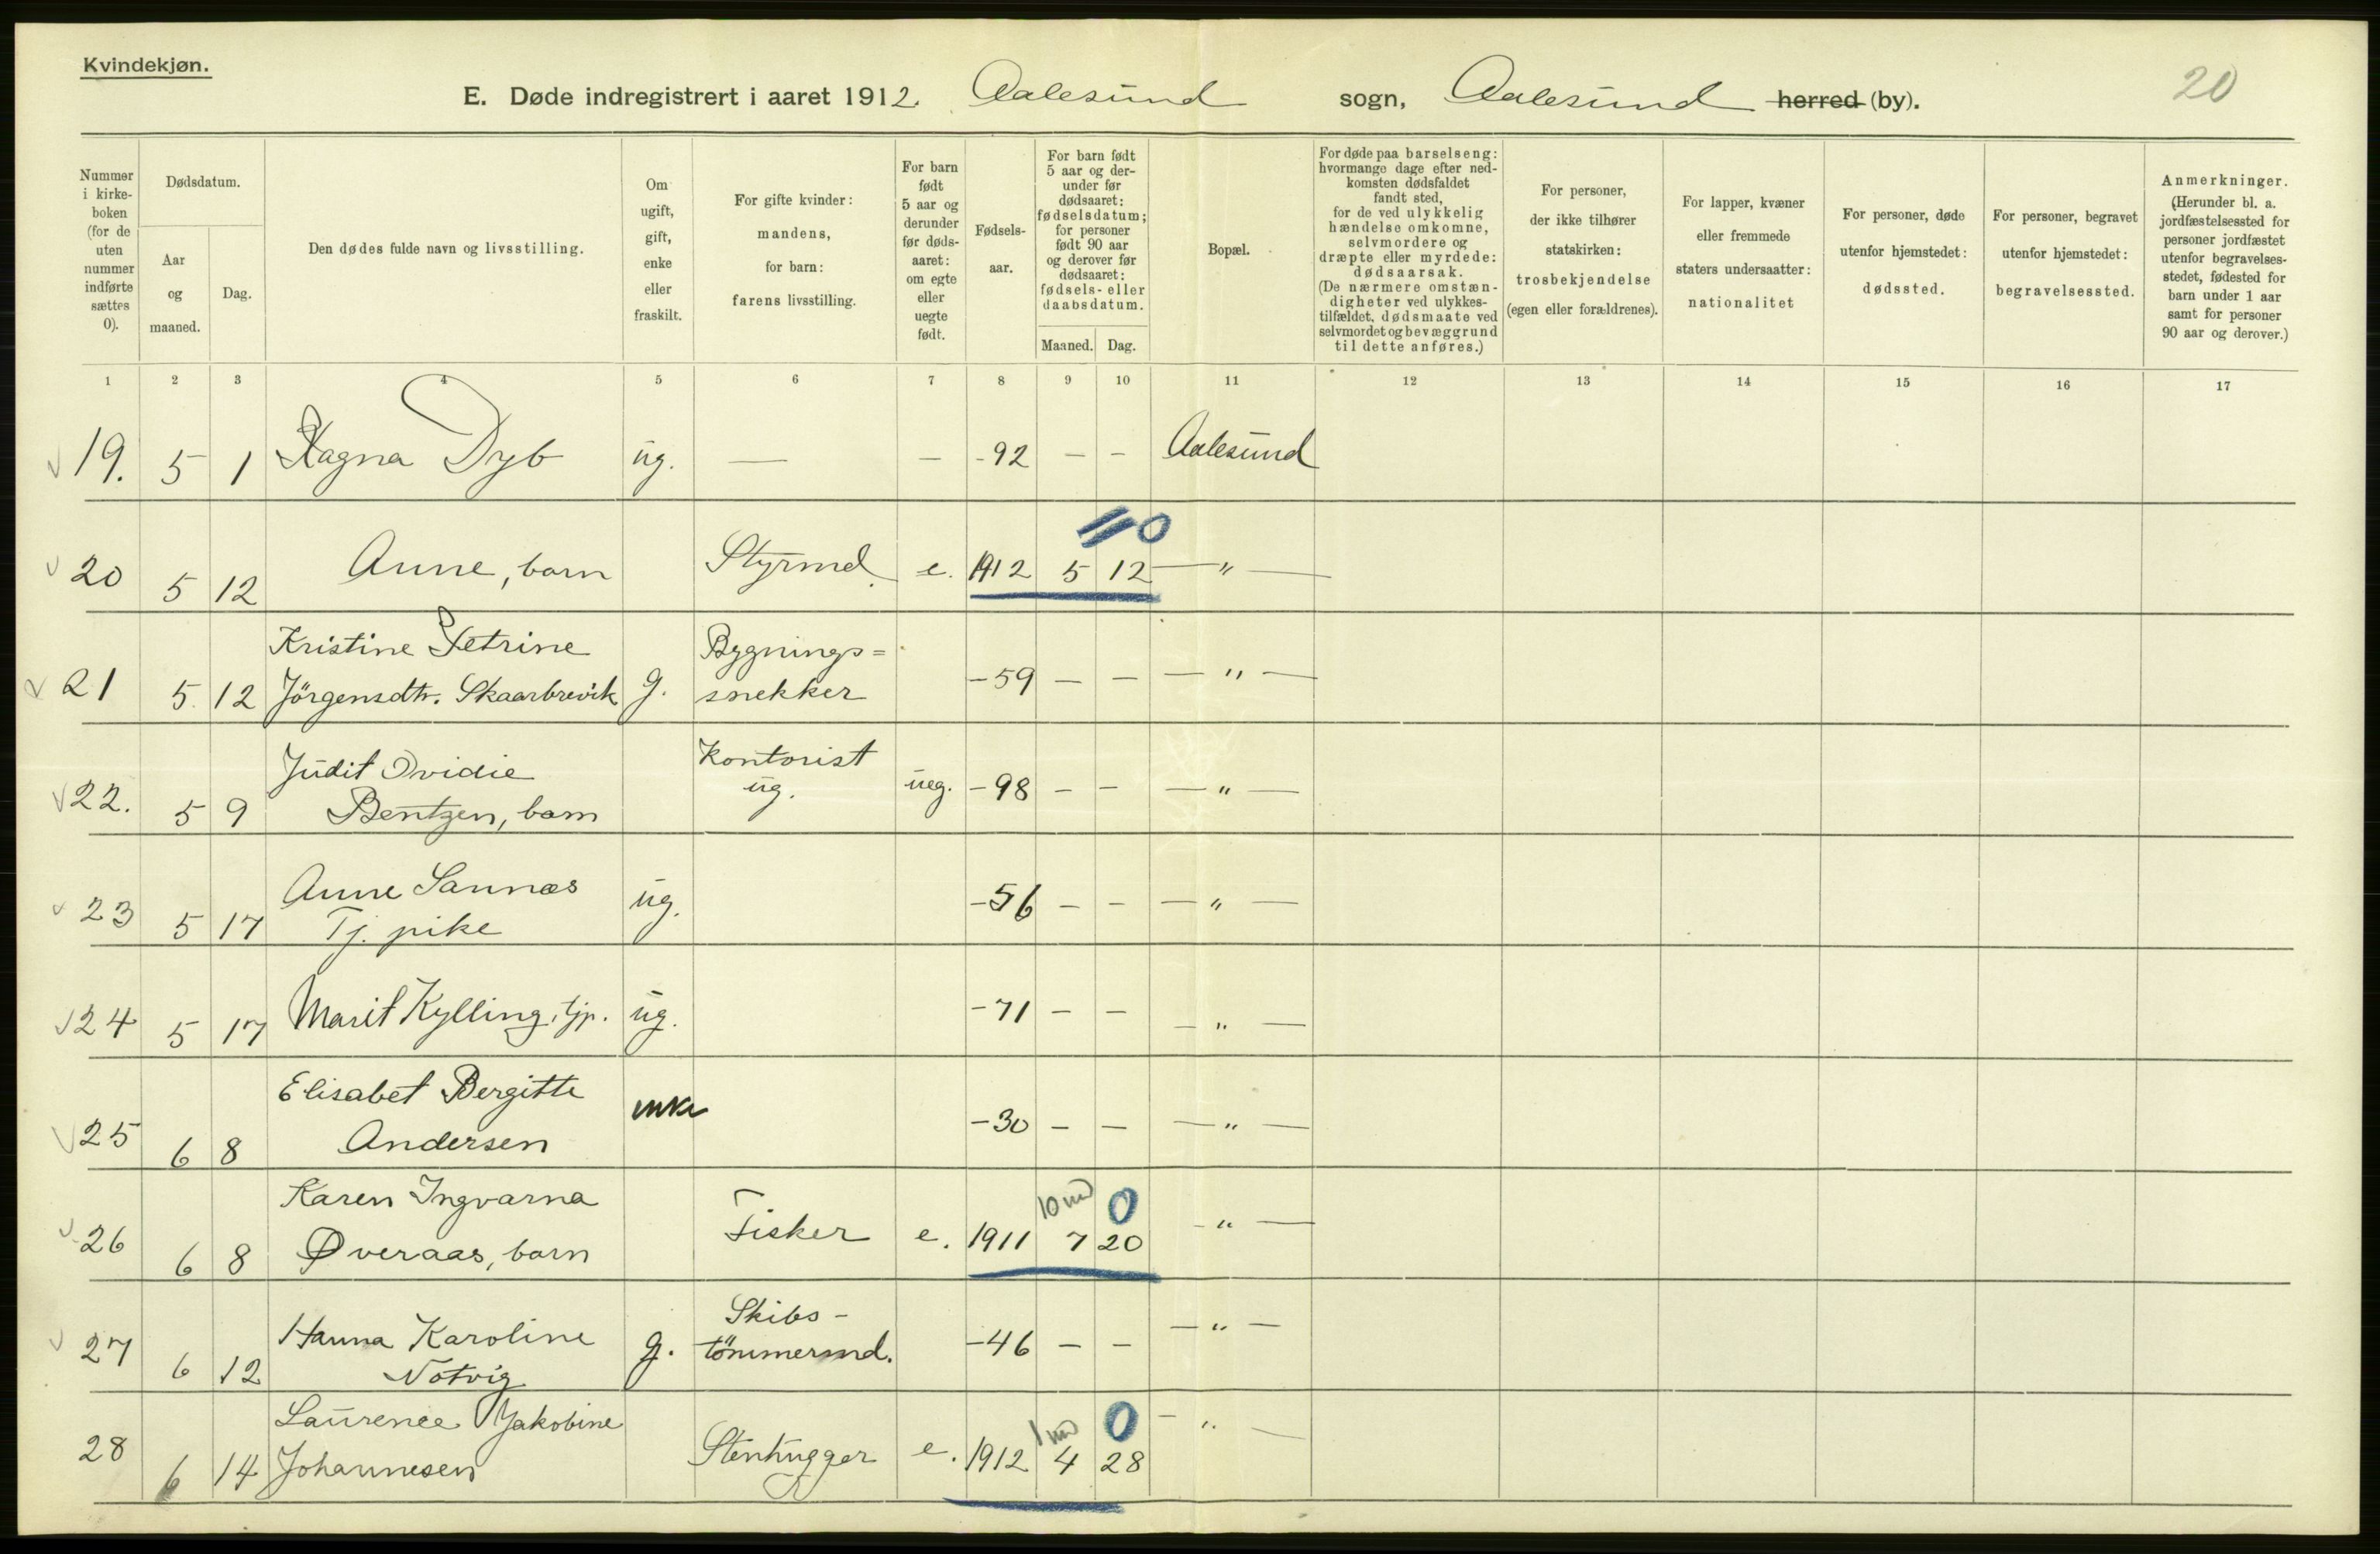 Kvindekjøn.
E. Døde indregistrert i aaret 1912. Aalesund sogn, Aalesund herred (by). 20
Nummer i kirke- boken (for de uten nummer indførte sættes 0).
Dødsdatum.
Aar og maaned.
Dag.
Den dødes fulde navn og livsstilling.
Om ugift, gift, enke eller fraskilt.
For gifte kvinder: mandens, for barn: farens livsstilling.
For barn født 5 aar og derunder før døds- aaret: om egte eller uegte født.
Fødsels- aar.
For barn født 5 aar og der- under før dødsaaret: fødselsdatum; for personer født 90 aar og derover før dødsaaret: fødsels- eller daabsdatum.
Maaned. Dag.
Bopæl.
For døde paa barselseng: hvormange dage efter ned- komsten dødsfaldet fandt sted, for de ved ulykkelig hændelse omkomne, selvmordere og dræpte eller myrdede: dødsaarsak. (De nærmere omstæn- digheter ved ulykkes- tilfældet, dødsmaate ved selvmordet og bevæggrund til dette anføres.)
For personer, der ikke tilhører statskirken: trosbekjendelse (egen eller forældrenes).
For lapper, kvæner eller fremmede staters undersaatter: nationalitet
For personer, døde utenfor hjemstedet: dødssted.
For personer, begravet utenfor hjemstedet: begravelsessted.
Anmerkninger. (Herunder bl. a. jordfæstelsessted for personer jordfæstet utenfor begravelses- stedet, fødested for barn under 1 aar samt for personer 90 aar og derover.)
1 2 3 4 5 6 7 8 9 10 11 12 13 14 15 16 17
19. 5 1 Ragna Dyb ug. — — -92 — — Aalesund
0
20 5 12 Anne, barn Styrmd. e. 1912 5 12 — " —
Kristine Petrine Bygnings=
21 5 12 Jörgensdtr. Skaarbrevik g. snekker -59 — — — " —
Judit Ovidie Kontorist
22. 5 9 Bentzen, barn ug. ueg. -98 — — — " —
Anne Sannæs
23 5 17 Tj. pike ug. -56 — — — " —
24 5 17 Marit Kylling, tjp. ug. -71 — — — " —
Elisabet Bergitte
25 6 8 Andersen enke -30 — — — " —
Karen Ingvarna 10 md 0
26 6 8 Øveraas, barn Fisker e. 1911 7 20 — " —
Hanna Karoline Skibs-
27 6 12 Notvig g. tömmermd. -46 — — — " —
Laurence Jakobine 1 md 0
28 6 14 Johannesen Stenhugger e. 1912 4 28 — " —